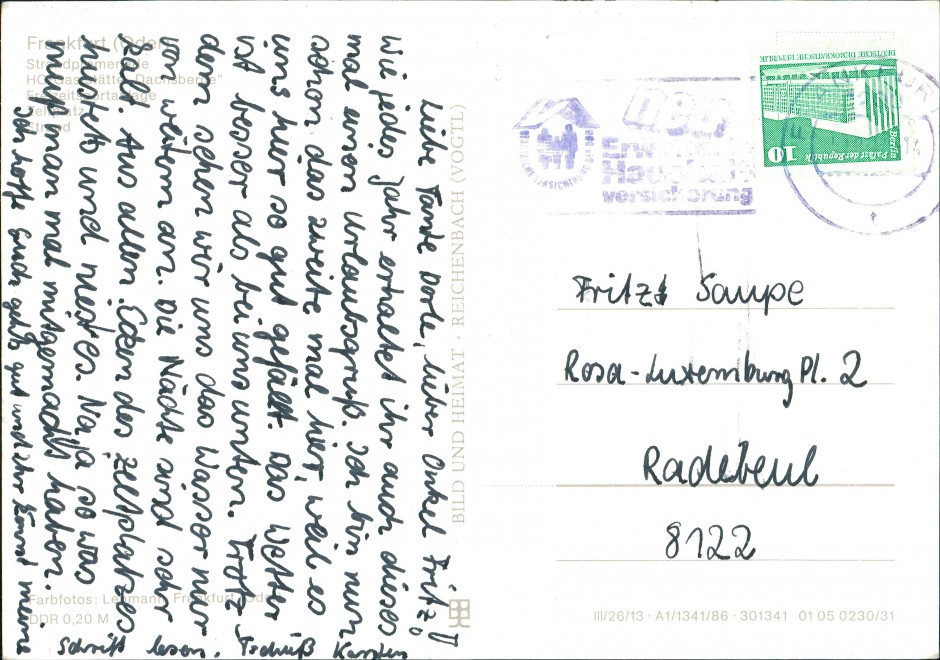 Frankfurt (Oder)
Strandpromenade
HO-Gaststätte "Dachsberge"
Freizeitsportanlage
Zeltplatz
Strand
Liebe Tante Dorle, lieber Onkel Fritz!
Wie jedes Jahr erhaltet ihr auch dieses
mal einen Urlaubsgruß. Ich bin nun
schon das zweite mal hier, weil es
uns hier so gut gefällt. Das Wetter
ist besser als bei uns unten. Trotz
dem sehen wir uns das Wasser nur
von weitem an. Die Nächte sind sehr
kalt. Aus allen Ecken des Zeltplatzes
hustets und niest es. Na ja so was
muß man mal mitgemacht haben.
Ich hoffe Euch gehts gut und Ihr könnt meine
Schrift lesen. Tschüß Karsten
Farbfotos: Lehmann, Frankfurt (Oder)
DDR 0,20 M
BILD UND HEIMAT · REICHENBACH (VOGTL)
neu
Haushalt
versicherung
DEUTSCHE DEMOKRATISCHE REPUBLIK
Berlin
Palast der Republik
10
Fritz Saupe
Rosa-Luxemburg Pl. 2
Radebeul
8122
III/26/13 · A1/1341/86 · 301341 01 05 0230/31